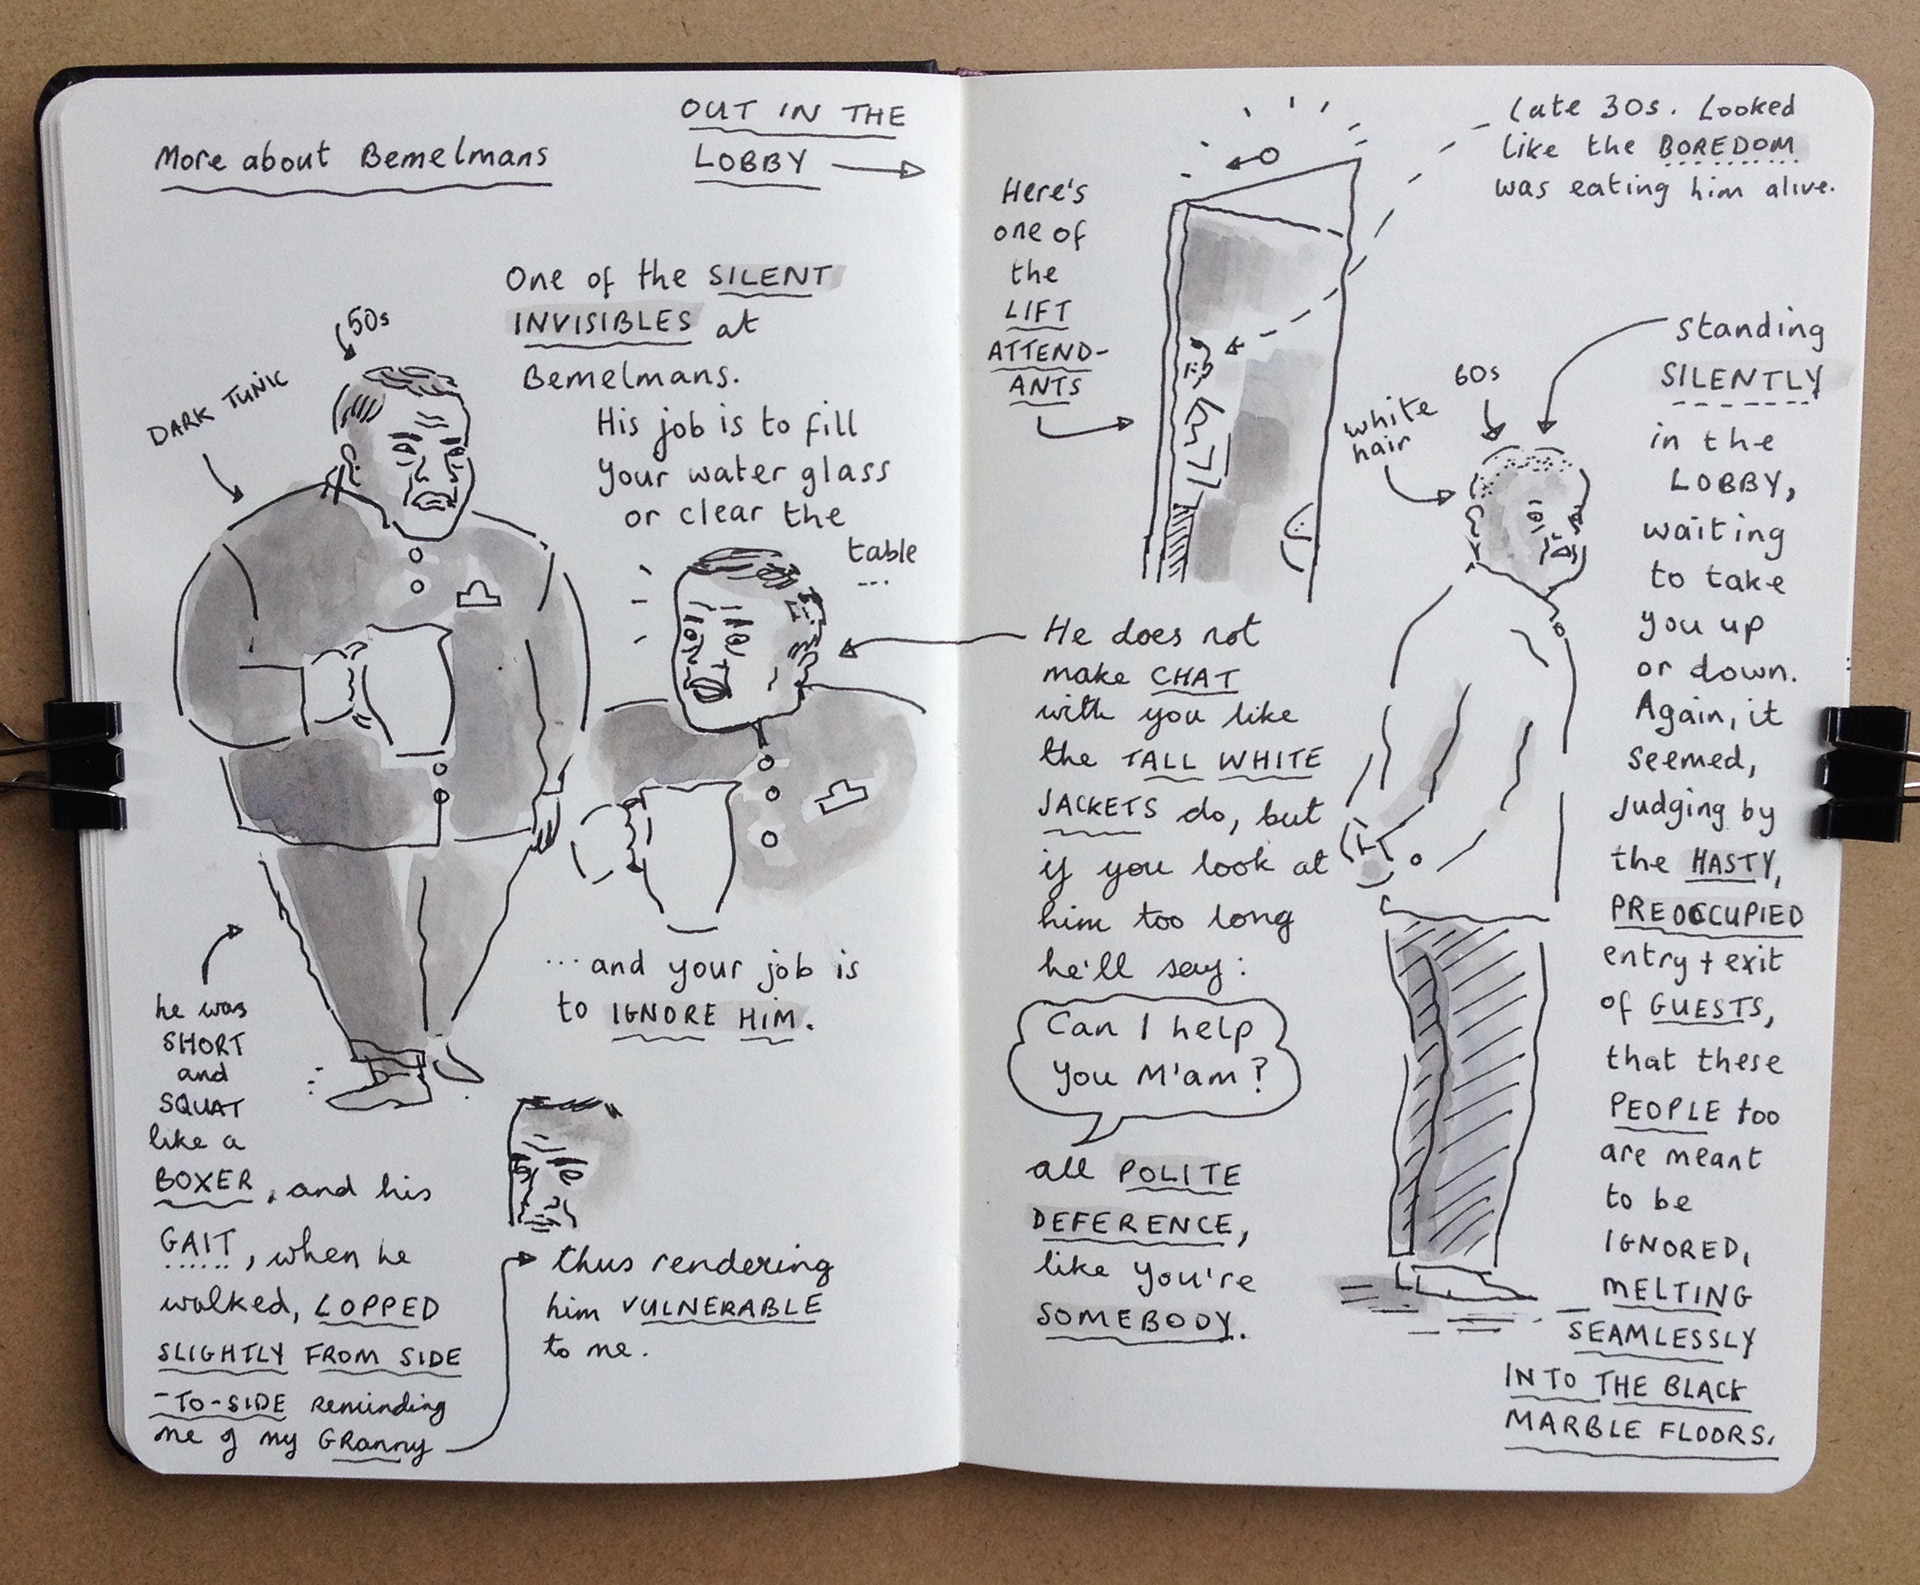 More about Bemelmans
OUT IN THE
LOBBY
50s
DARK TUNIC
One of the SILENT
INVISIBLES at
Bemelmans.
His job is to fill
your water glass
or clear the
table
...
...and your job is
to IGNORE HIM.
he was
SHORT
and
SQUAT
like a
BOXER, and his
GAIT, when he
walked, LOPPED
SLIGHTLY FROM SIDE
-TO-SIDE reminding
me of my GRanny
thus rendering
him VULNERABLE
to me.
Here's
one of
the
LIFT
ATTEND-
ANTS
Late 30s. Looked
like the BOREDOM
was eating him alive.
He does not
make CHAT
with you like
the TALL WHITE
JACKETS do, but
if you look at
him too long
he'll say:
Can I help
you M'am?
all POLITE
DEFERENCE,
like you're
SOMEBODY.
60s
white
hair
Standing
SILENTLY
in the
LOBBY,
waiting
to take
you up
or down.
Again, it
seemed,
judging by
the HASTY,
PREOCCUPIED
entry + exit
of GUESTS,
that these
PEOPLE too
are meant
to be
IGNORED,
MELTING
SEAMLESSLY
INTO THE BLACK
MARBLE FLOORS.